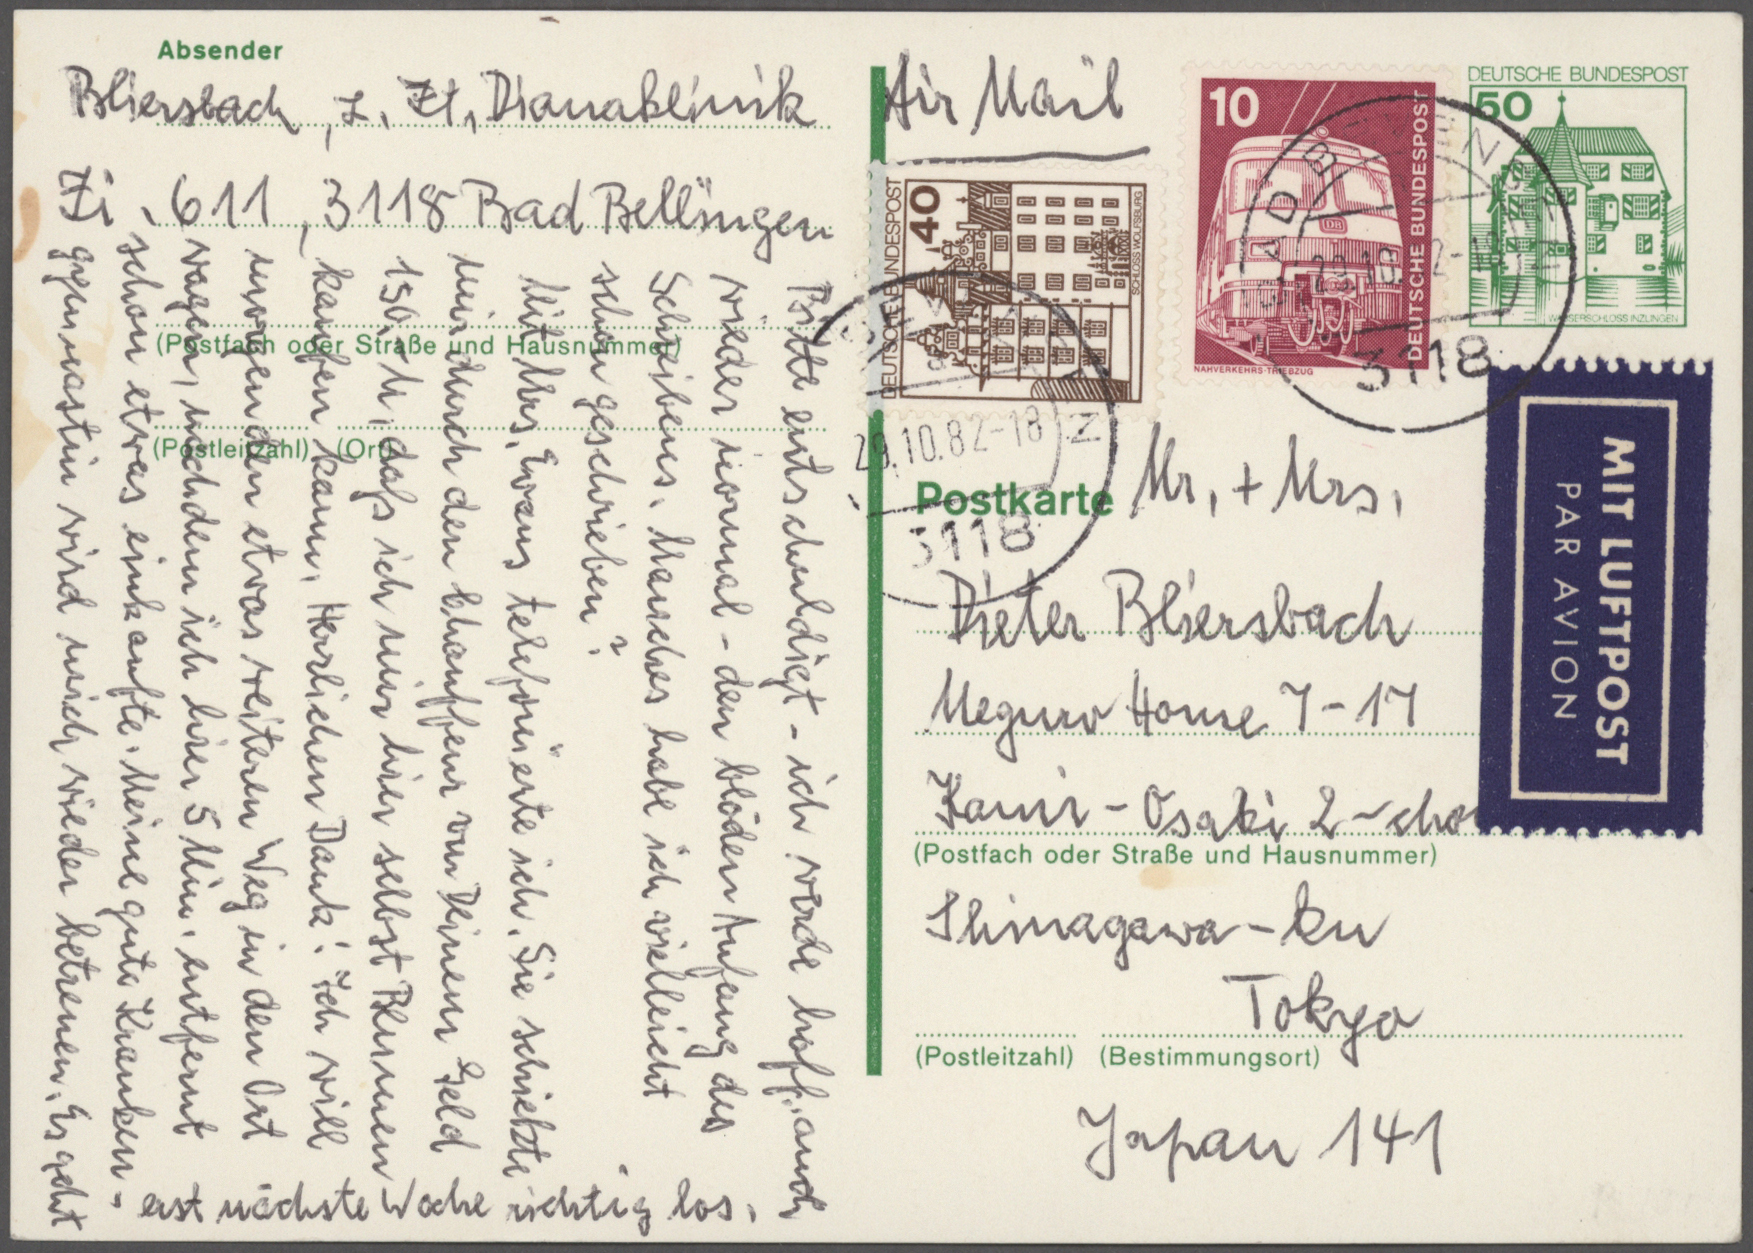 Absender
Bliersbach, z. Zt. Dianaklinik
Zi. 611, 3118 Bad Bellingen
(Postfach oder Straße und Hausnummer)
(Postleitzahl) (Ort)
Bitte entschuldigt - ich werde hoff. auch
wieder normal - den blöden Anfang des
Schreibens. Manches habe ich vielleicht
schon geschrieben?
Mit Mrs. Evans telefonierte ich. Sie schickte
mir durch den Chauffeur von Deinem Geld
150,- M, daß ich mir hier selbst Blumen
kaufen kann. Herzlichen Dank! Ich will
morgen den etwas weiteren Weg in den Ort
wagen, nachdem ich hier 5 Min. entfernt
schon etwas einkaufte. Meine gute Kranken-
gymnastin wird mich wieder betreuen. Es geht
erst nächste Woche richtig los.
Air Mail
DEUTSCHE BUNDESPOST
40
SCHLOSS WOLFSBURG
10
DEUTSCHE BUNDESPOST
DB
NAHVERKEHRS-TRIEBZUG
DEUTSCHE BUNDESPOST
50
WASSERSCHLOSS INZLINGEN
29.10.82-18
3118
29.10.82-18
3118
MIT LUFTPOST
PAR AVION
Postkarte
Mr. + Mrs.
Dieter Bliersbach
Meguro House 7-17
Kami-Osaki 2-cho
(Postfach oder Straße und Hausnummer)
Shinagawa-ku
Tokyo
(Postleitzahl) (Bestimmungsort)
Japan 141